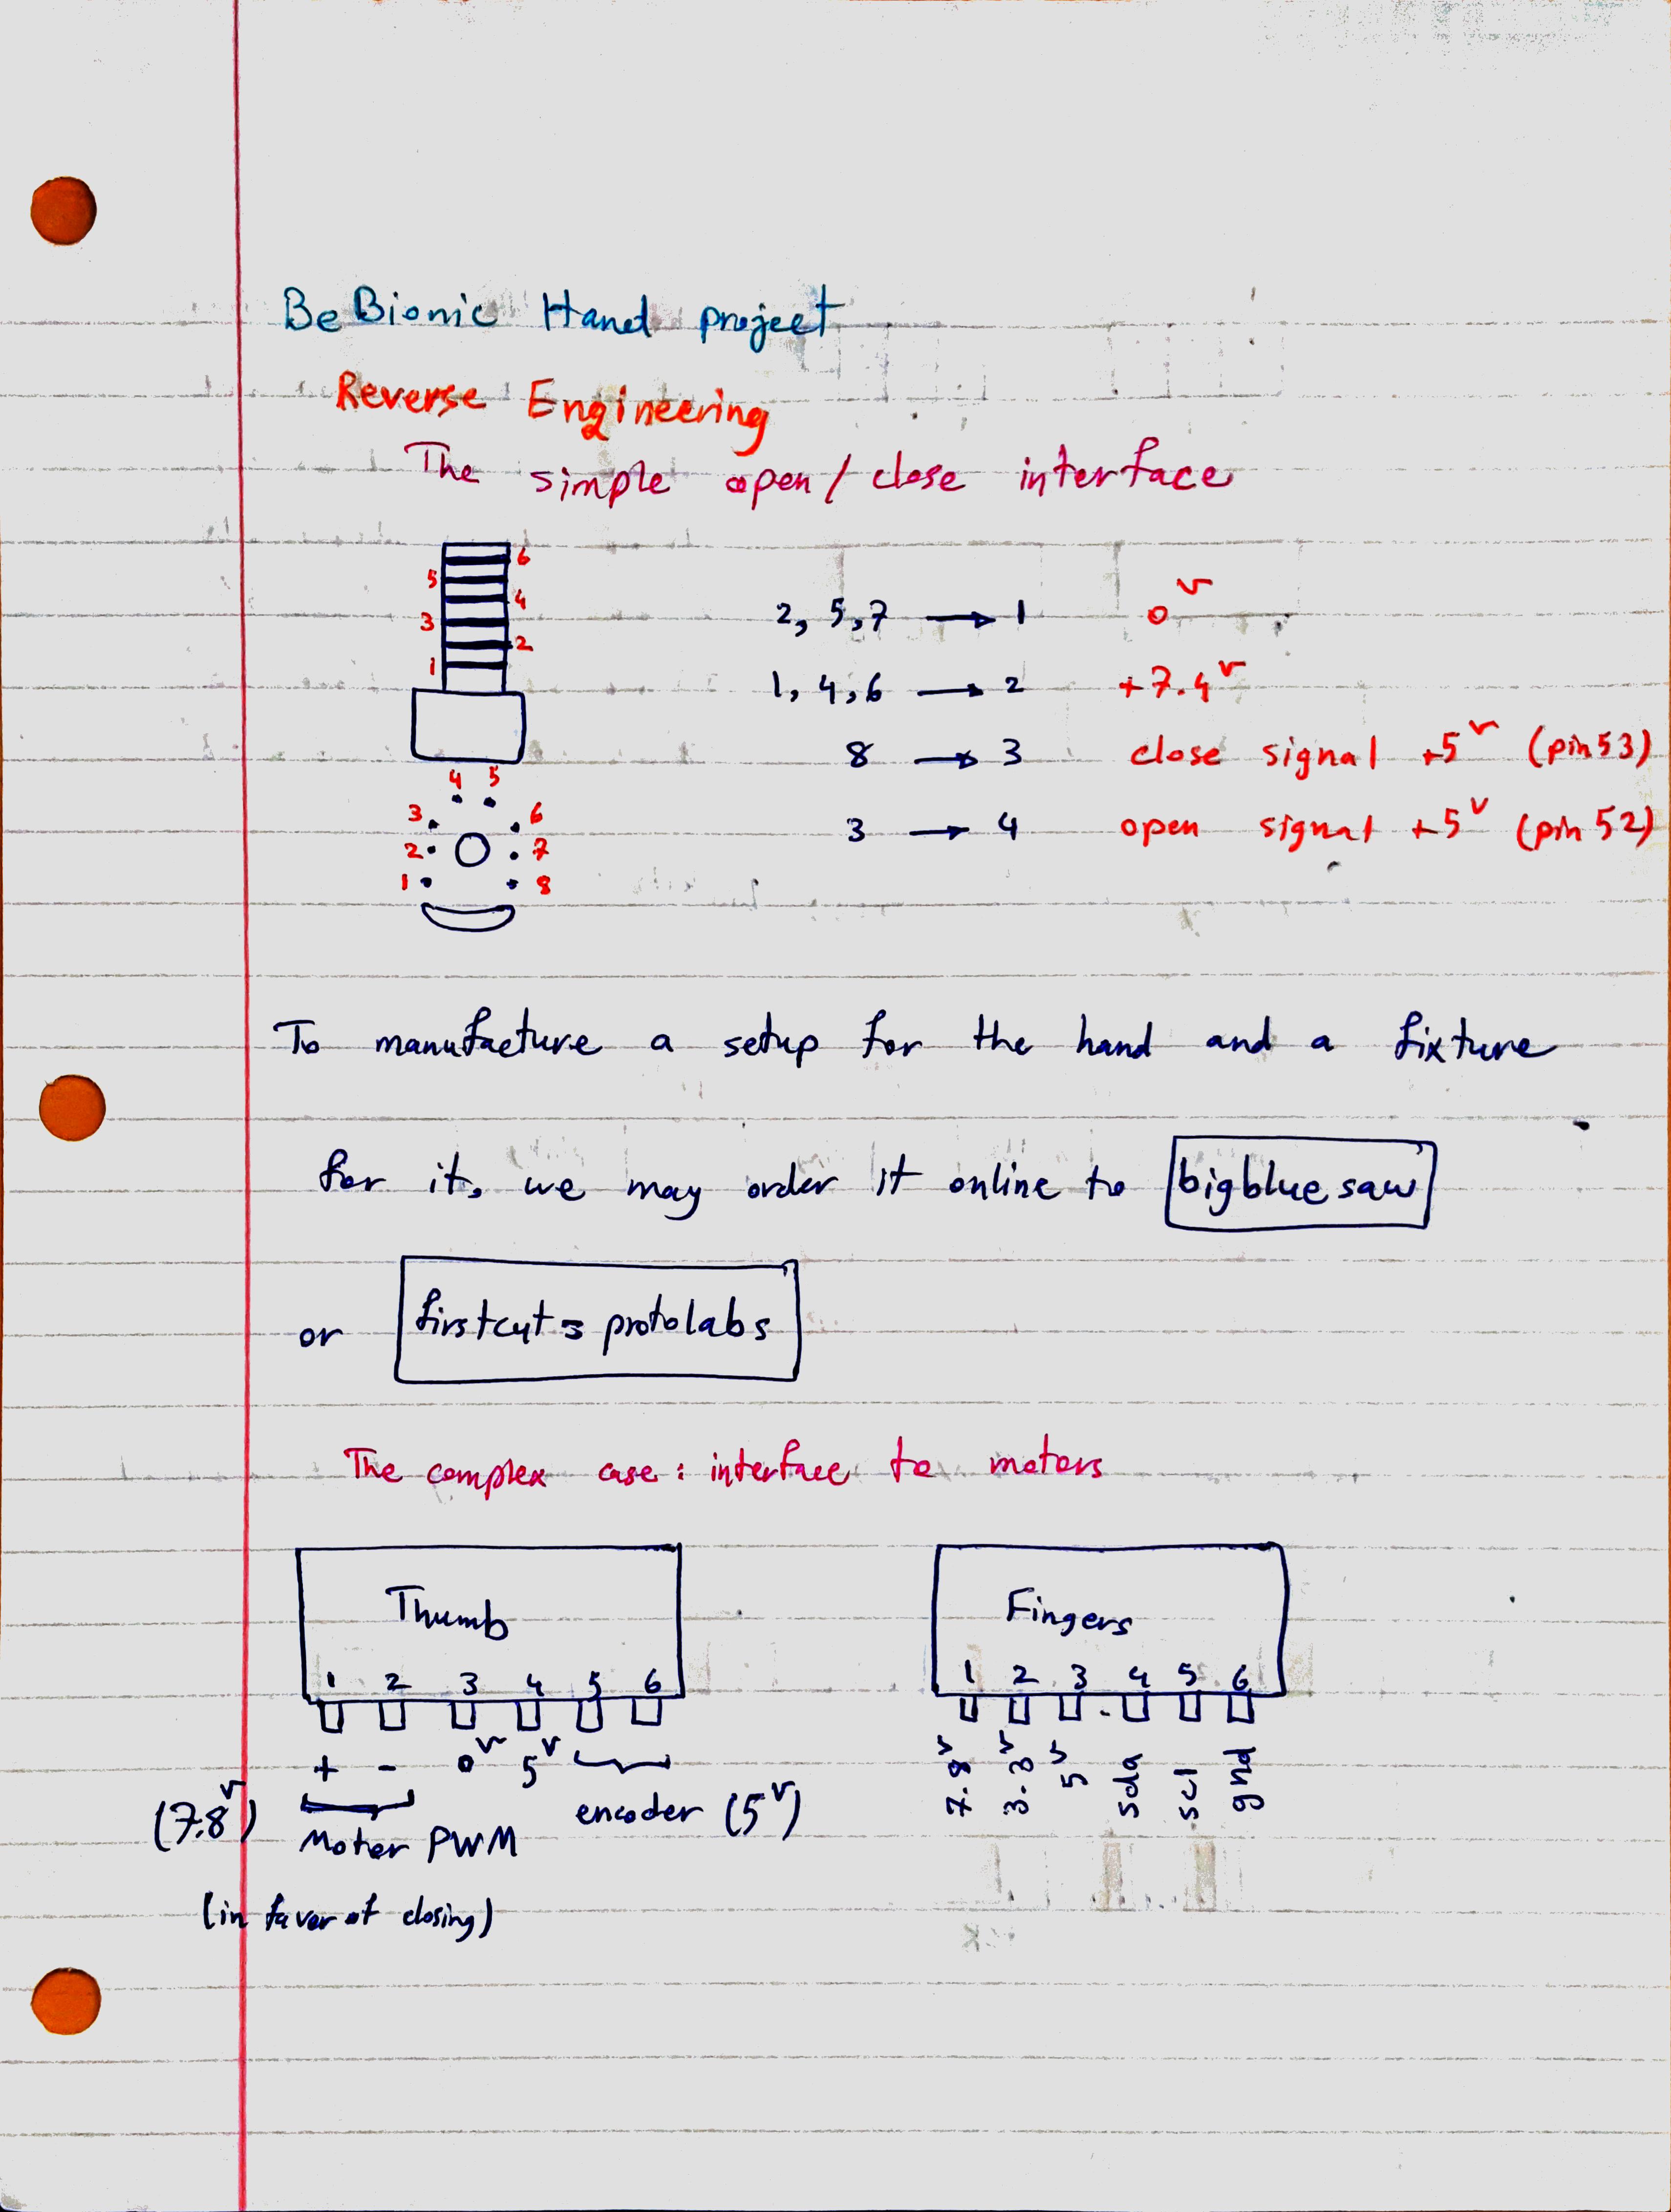 BeBionic Hand project
Reverse Engineering
The simple open/close interface
6
5
4
3
2
1
2, 5, 7 → 1 0v
1, 4, 6 → 2 +7.4v
8 → 3 close signal +5v (pin 53)
3 → 4 open signal +5v (pin 52)
4 5
3 6
2 7
1 8
To manufacture a setup for the hand and a fixture
for it, we may order it online to bigbluesaw
or firstcut = protolabs
The complex case: interface to motors
Thumb
1 2 3 4 5 6
+ - 0v 5v
(7.8v) Motor PWM encoder (5v)
(in favor of closing)
Fingers
1 2 3 4 5 6
3.3v 5v sda scl gnd